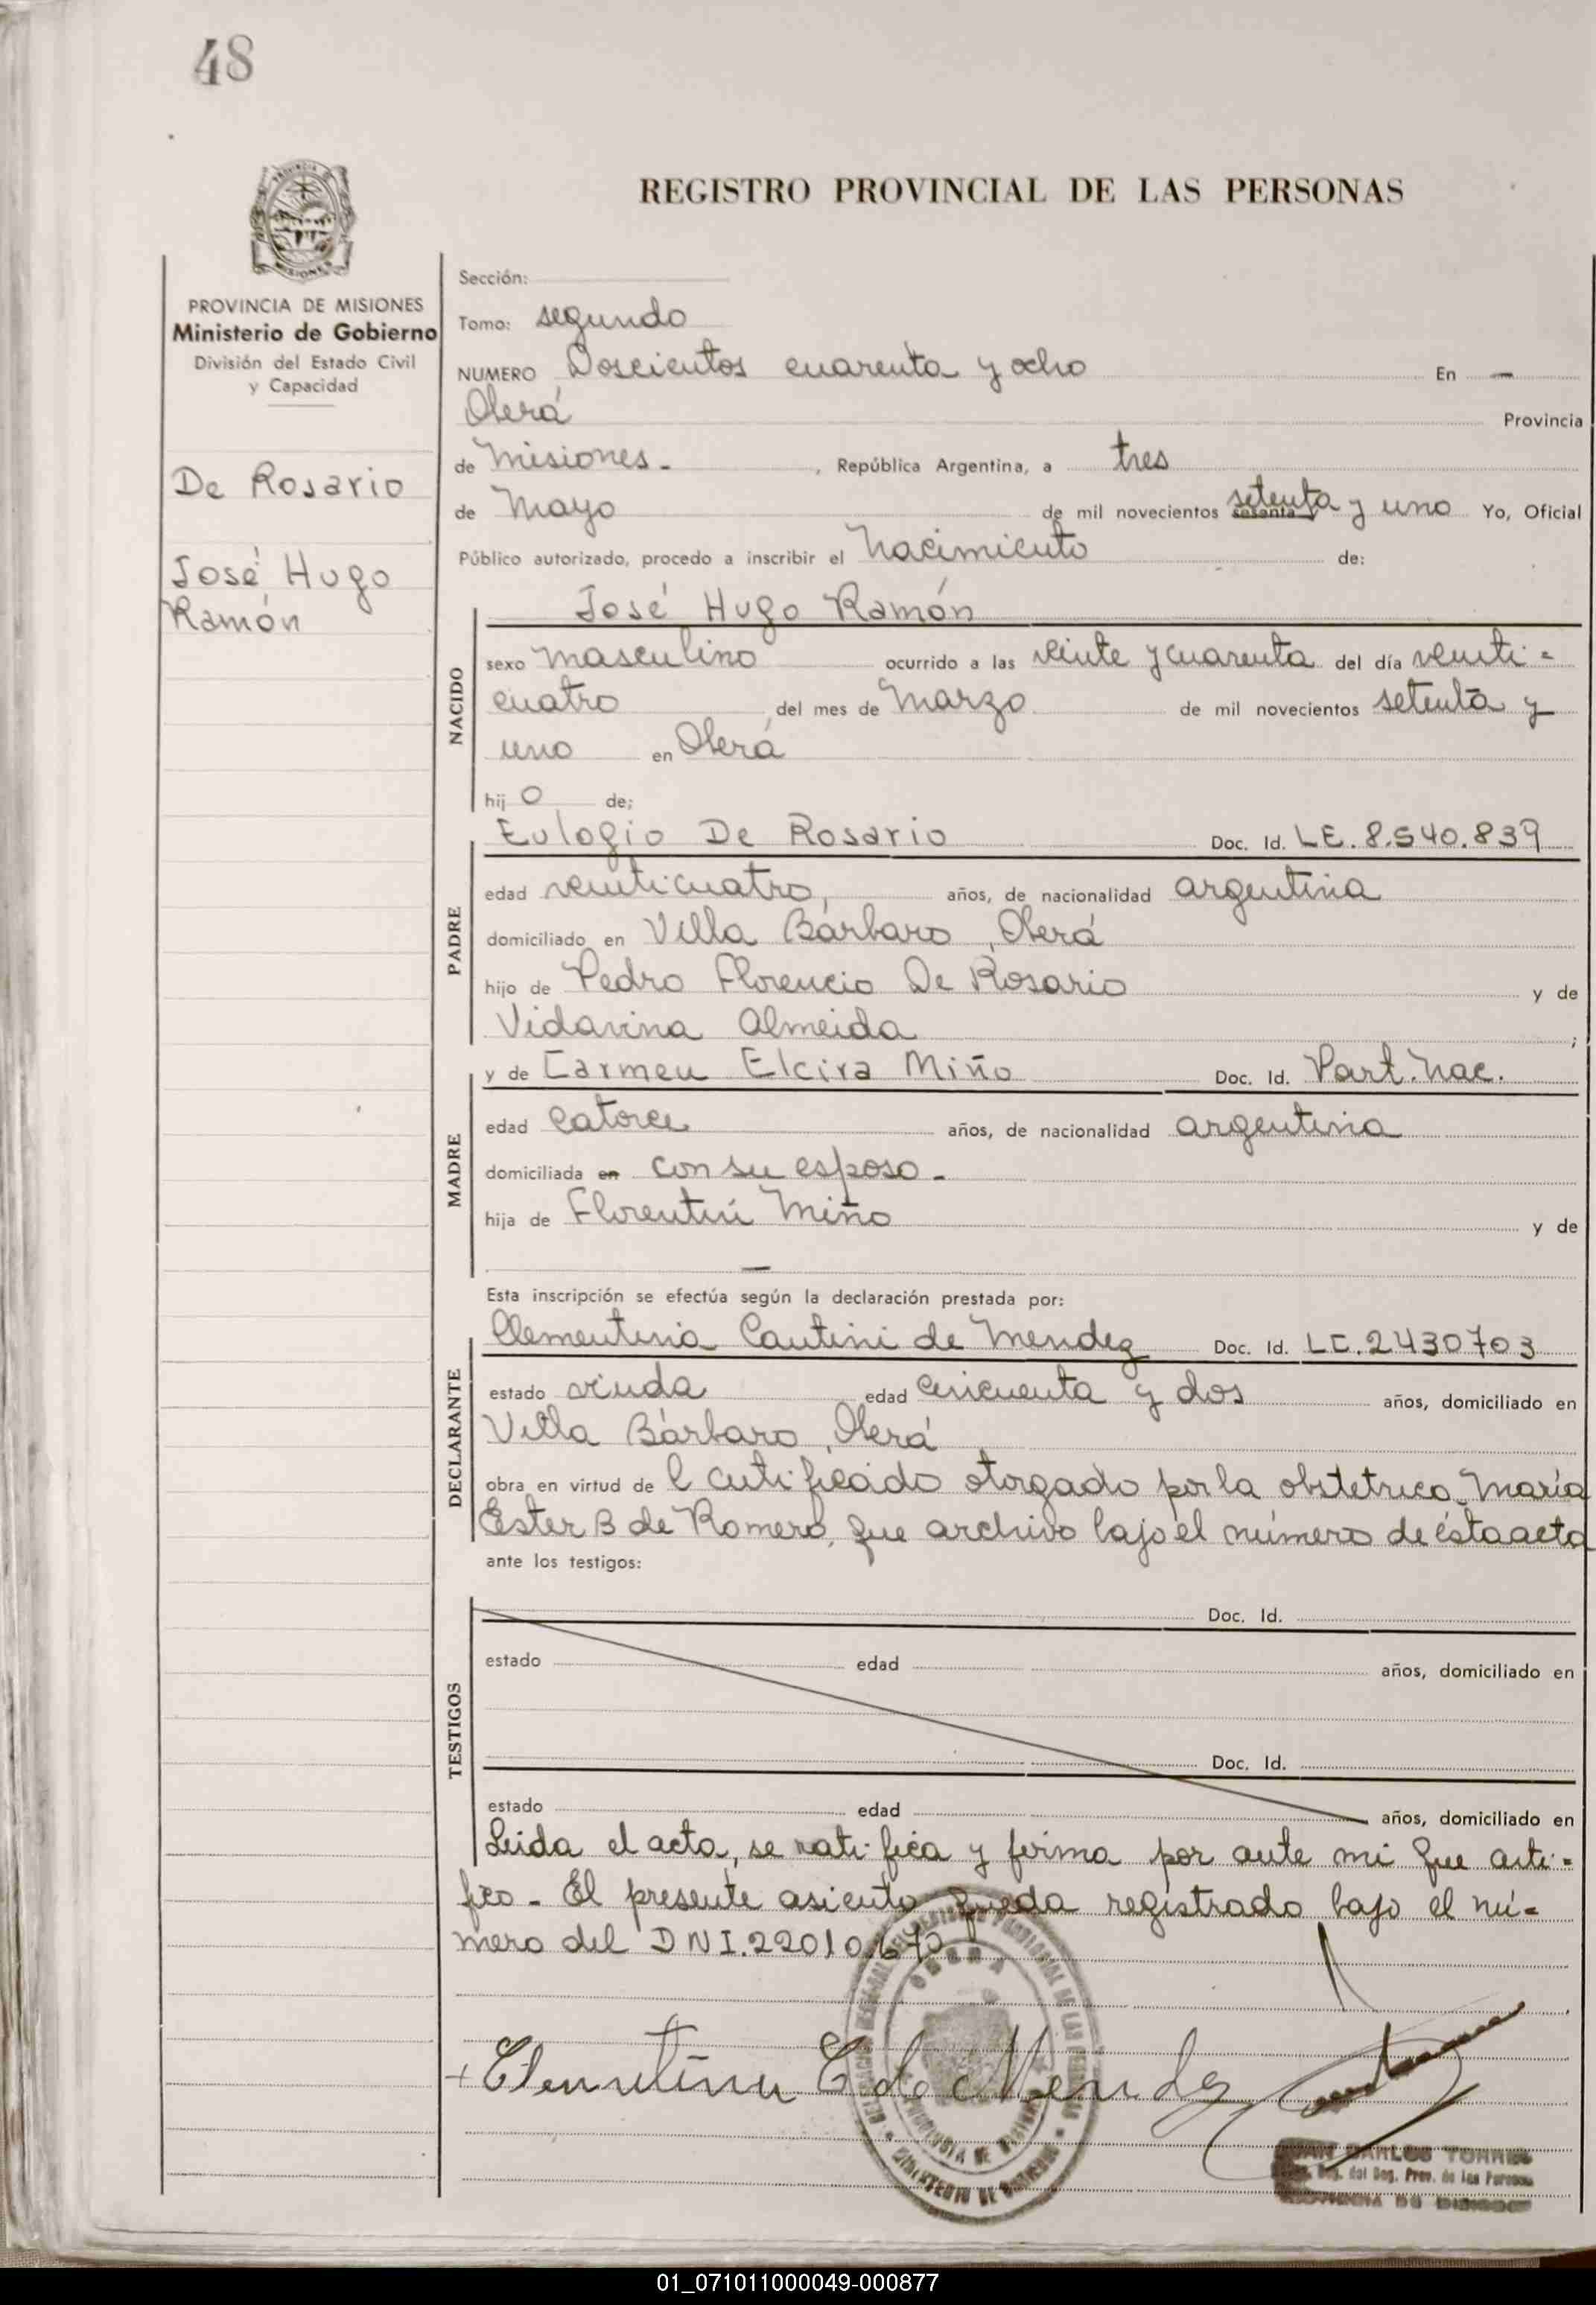 48
REGISTRO PROVINCIAL DE LAS PERSONAS
PROVINCIA DE MISIONES
Ministerio de Gobierno
División del Estado Civil
y Capacidad
De Rosario
José Hugo
Ramón
Sección:
Tomo: segundo
NUMERO Doscientos cuarenta y ocho En —
Oberá Provincia
de Misiones - , República Argentina, a tres
de Mayo de mil novecientos sesenta setenta y uno Yo, Oficial
Público autorizado, procedo a inscribir el Nacimiento de:
NACIDO
José Hugo Ramón
sexo masculino ocurrido a las veinte y cuarenta del día veinti-
cuatro del mes de Marzo de mil novecientos setenta y
uno en Oberá
hij o de;
PADRE
Eulogio De Rosario Doc. Id. LE. 8.540.839
edad veinticuatro, años, de nacionalidad argentina
domiciliado en Villa Bárbaro, Oberá
hijo de Pedro Florencio De Rosario y de
Vidavina Almeida ;
MADRE
y de Carmen Elcira Miño Doc. Id. Part. Nac.
edad catorce años, de nacionalidad argentina
domiciliada en con su esposo -
hija de Florentín Miño y de
—
Esta inscripción se efectúa según la declaración prestada por:
DECLARANTE
Clementina Cantini de Mendez Doc. Id. LC. 2430703
estado viuda edad cincuenta y dos años, domiciliado en
Villa Bárbaro, Oberá
obra en virtud de l certificado otorgado por la obstetrica María
Ester B de Romero, que archivo bajo el número de ésta acta
ante los testigos:
TESTIGOS
Doc. Id.
estado edad años, domiciliado en
Doc. Id.
estado edad años, domiciliado en
Leida el acta, se ratifica y firma por ante mi que certi-
fico - El presente asiento queda registrado bajo el nú-
mero del DNI. 22010.670
Clementina C de Mendez
JUAN CARLOS TORRES
del Reg. Prov. de las Personas
PROVINCIA DE MISIONES
01_071011000049-000877